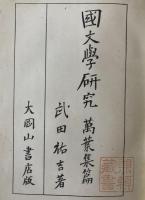 國文學研究 萬葉集篇
武田祐吉著
大岡山書店版